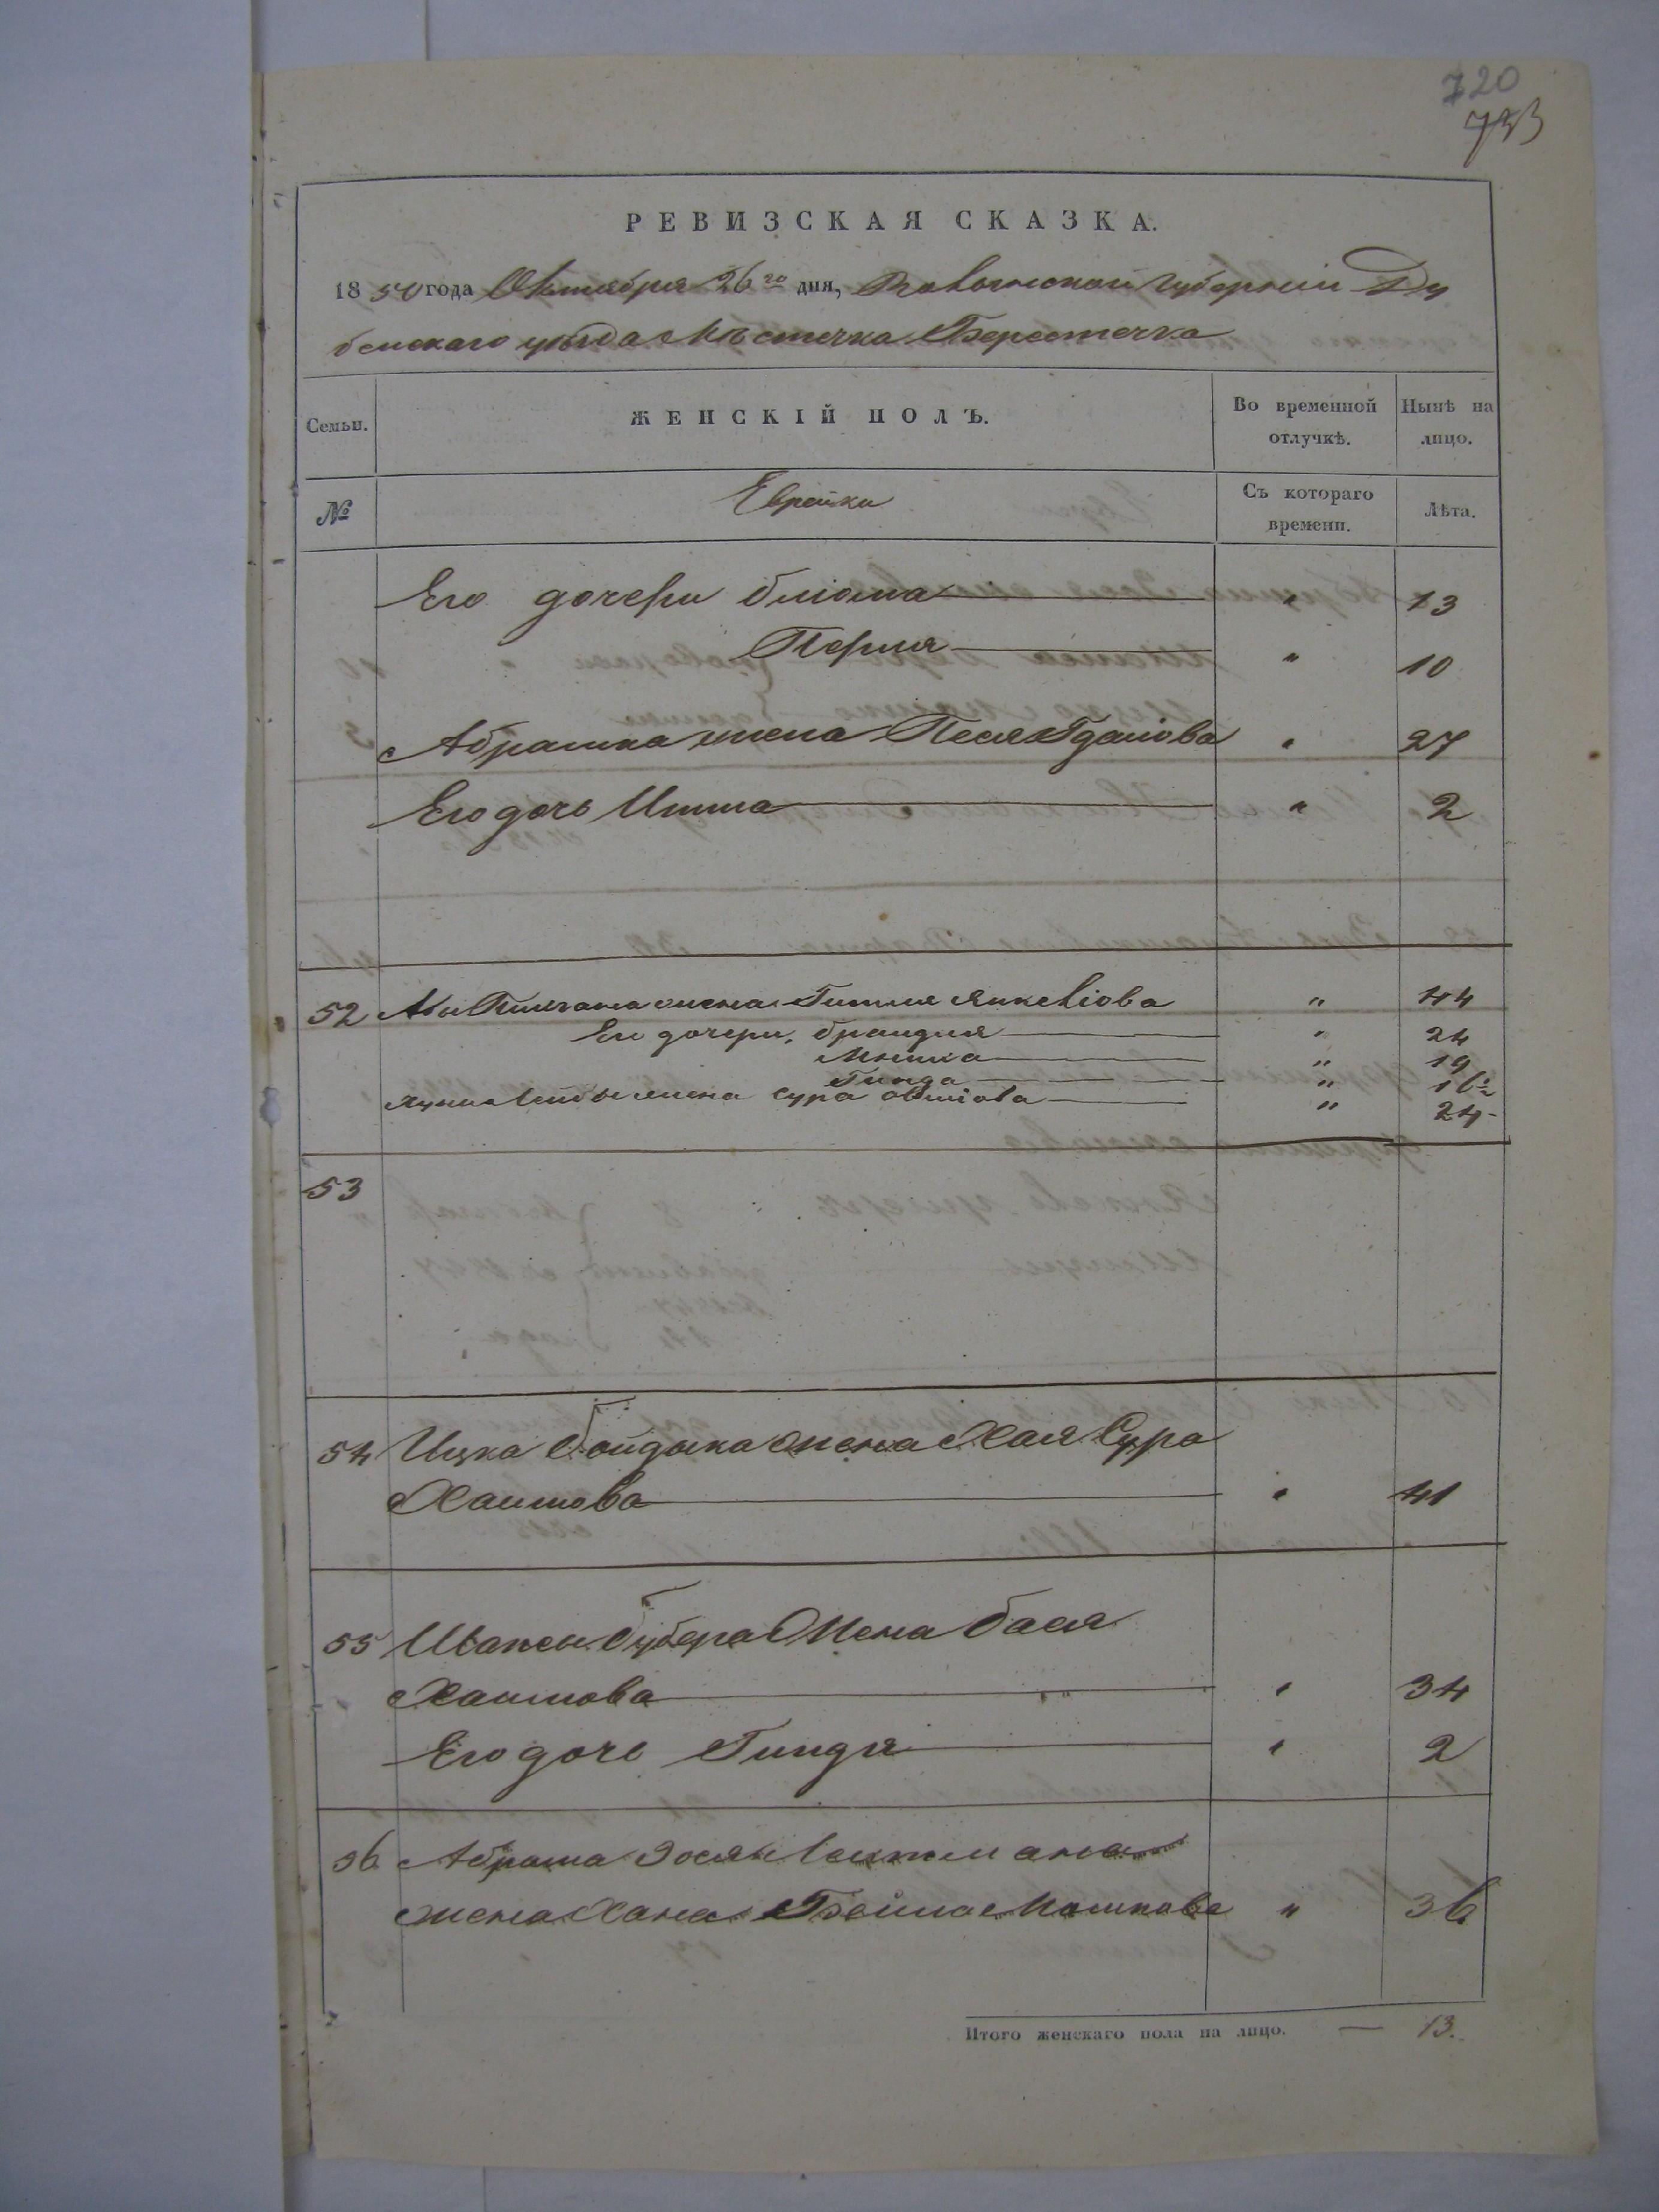 720
723
РЕВИЗСКАЯ СКАЗКА.
1850 года Октября 26го дня, Волынской губерніи Ду
бенскаго уѣзда Мѣстечка Берестечка
Семьи. ЖЕНСКІЙ ПОЛЪ. Во временной отлучкѣ. Нынѣ на лицо.
№ Еврейки Съ котораго времени. Лѣта.
Его дочери блюма " 13
Перля " 10
Абрамка жена Песя Гдалова " 27
Его дочь Итта " 2
52 жена Гитля Янкелова " 44
Ею дочери, брандля " 24
" 19
Гинда " 16
жена Сура " 24
53
54 Ицка жена Хая Сура
Хаимова " 41
55 жена бася
Хаимова " 34
Его дочь Гиндя " 2
56 Абрама
жена Хана Бейла Мошкова " 36
Итого женскаго пола на лицо. — 13.